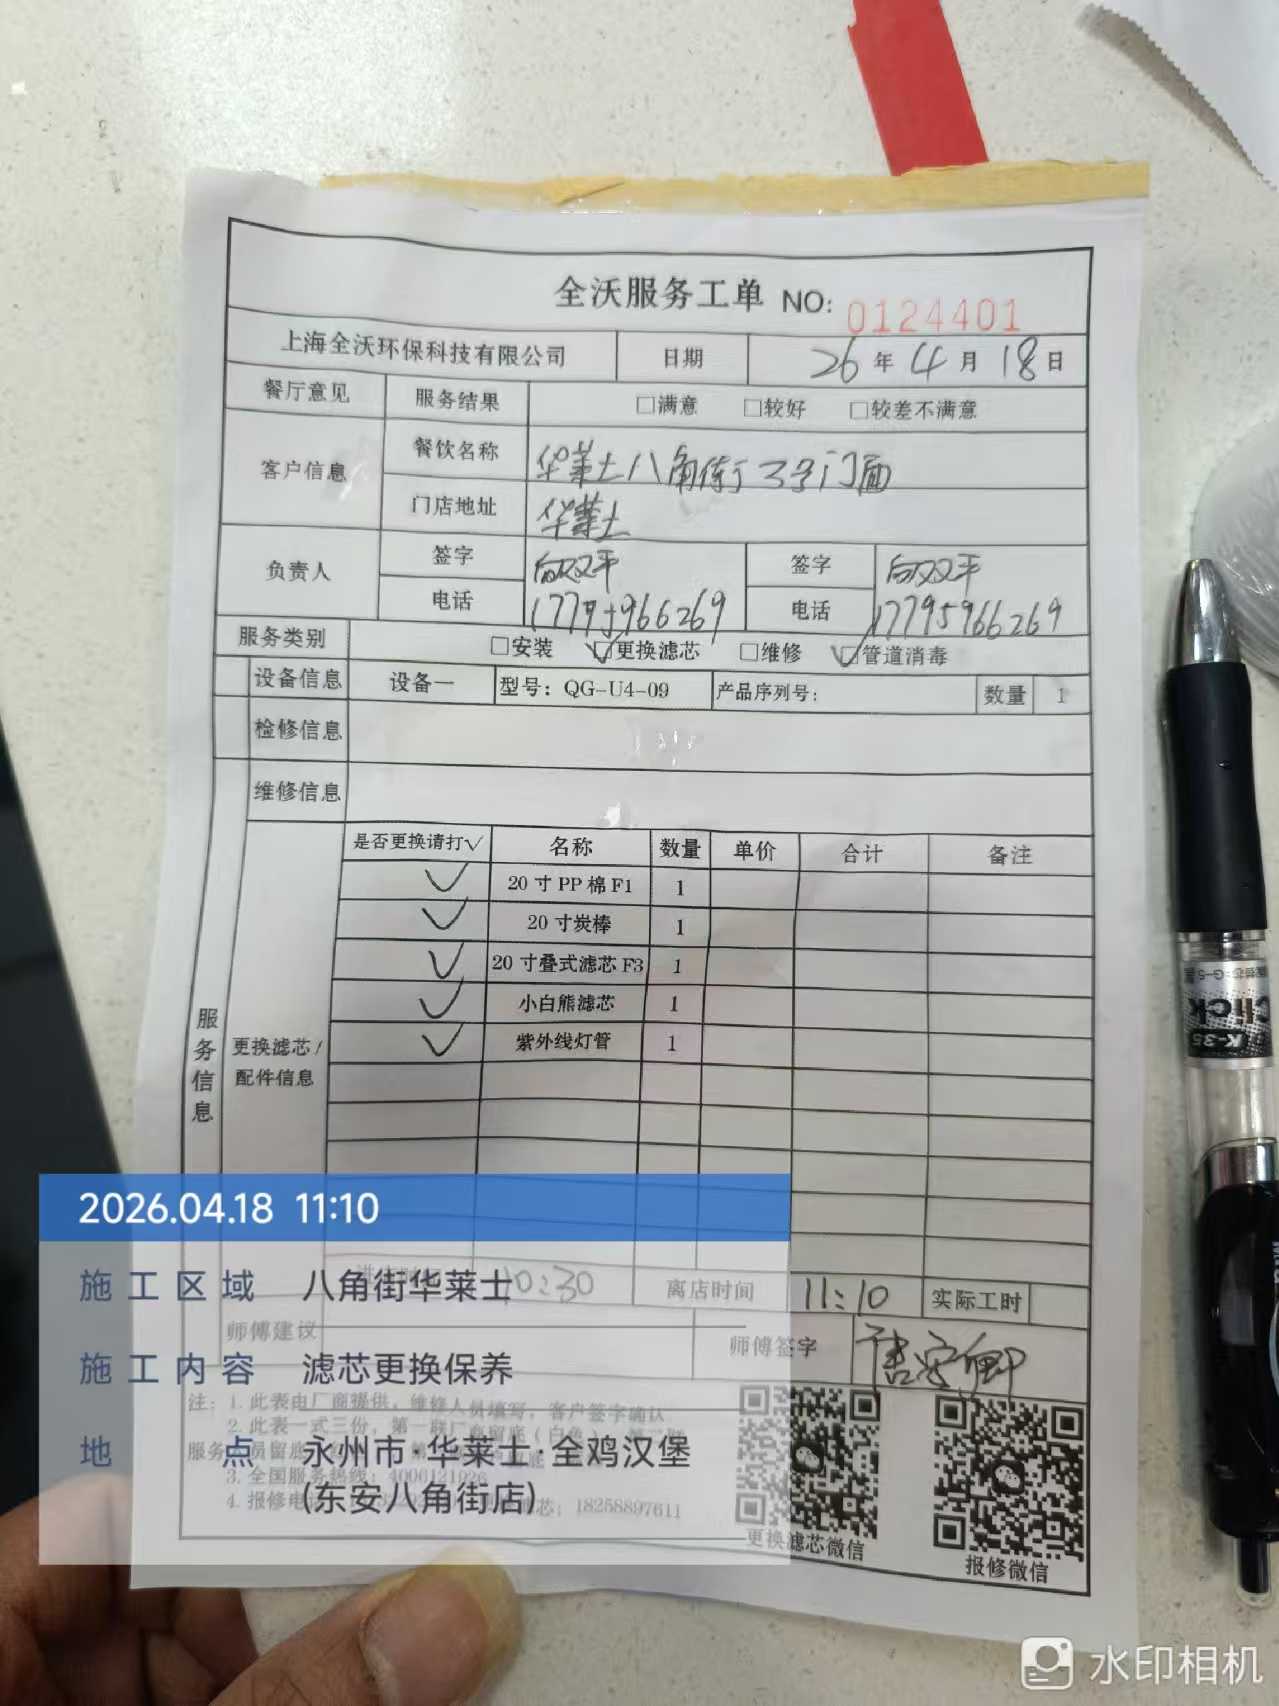 全沃服务工单 NO: 0124401
上海全沃环保科技有限公司 日期 26 年 4 月 18 日
餐厅意见 服务结果 □满意 □较好 □较差不满意
客户信息 餐饮名称 华莱士八角街73号门面
门店地址 华莱士
负责人 签字 向双平 签字 向双平
电话 17795966269 电话 17795966269
服务类别 □安装 ☑更换滤芯 □维修 ☑管道消毒
设备信息 设备一 型号：QG-U4-09 产品序列号： 数量 1
检修信息
维修信息
服务信息
更换滤芯/
配件信息
是否更换请打✓ 名称 数量 单价 合计 备注
✓ 20 寸 PP 棉 F1 1
✓ 20 寸炭棒 1
✓ 20 寸叠式滤芯 F3 1
✓ 小白熊滤芯 1
✓ 紫外线灯管 1
10:30 离店时间 11:10 实际工时
师傅建议 师傅签字
注：1. 此表由厂商提供，维修人员填写，客户签字确认
2. 此表一式三份，第一联厂商留底（白色）
3. 全国服务热线：4000121926
4. 报修电 18258897611
更换滤芯微信
报修微信
2026.04.18 11:10
施工区域 八角街华莱士
施工内容 滤芯更换保养
地点 永州市·华莱士·全鸡汉堡
(东安八角街店)
Click
K-35
水印相机